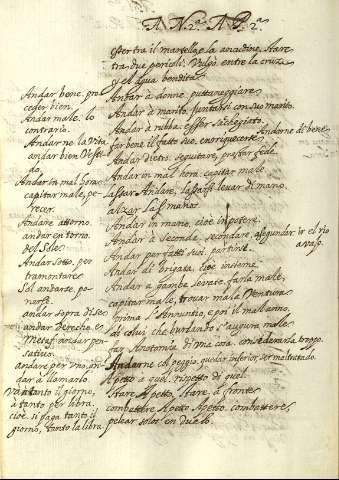 A N.2.ª A P.2.ª
esser tra il martello e la ancudine, stare
tra due pericoli. Vulgò, entre la cruz
y el agua bendita.
Andar à donne, puttaneggiare
Andar à marito, juntarsi con suo marito.
Andar à rubba, esser sacheggiato.
far bene il fatto suo, enriquecerse
Andar dietro, seguitare, prestar fede
Andar in mal hora, capitar male
Lassar Andare, lassarsi levar di mano.
alzar las manos.
Andar in mano, cioè in potere
Andar à seconda, secondare, segundar ir el rio
avaxo.
Andar per fatti suoi, partirse.
Andar di brigata, cioè insieme
Andar a gambe levate, farla male,
capitar male, trovar mala Ventura
prima l'ennuntio, e poi il mall'anno,
di colui che burlando s'augura male
far Anotomia di una cosa, considerarla troppo.
Andarne col peggio, quedar inferior, ser maltratado.
Apetto a quel, rispetto di quel
Stare Apetto, stare à fronte
combattere Apetto Apetto, combattere,
pelear solos en duelo.
Andar bene, pro
ceder bien.
Andar male, lo
contrario.
Andarne la Vita
andar bien Vesti
do,
Andar in mal
capitar male, pe
recer.
Andare attorno,
andar en torno.
del Sole
Andar sotto, per
tramontare
Sol andarse, po
narse.
andar sopra di se
andar derecho, et
Metaf. andar pen
sativo.
andare per uno, an
dar a llamarlo.
Va tanto il giorno,
à tanto per libra.
cioè, si paga tanto il
giorno, tanto la libra.
Andarne di bene